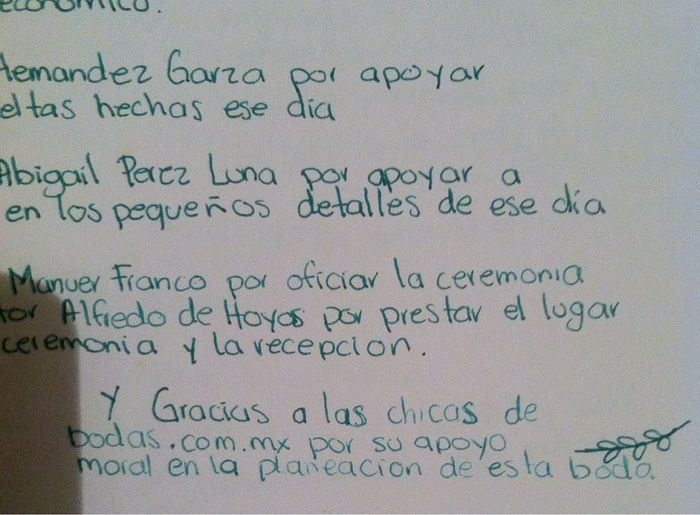 económico.
Hernandez Garza por apoyar
eltas hechas ese día
Abigail Perez Luna por apoyar a
en los pequeños detalles de ese día
Manuer Franco por oficiar la ceremonia
tor Alfredo de Hoyos por prestar el lugar
ceremonia y la recepcion.
Y Gracias a las chicas de
bodas.com.mx por su apoyo
moral en la planeacion de esta boda.